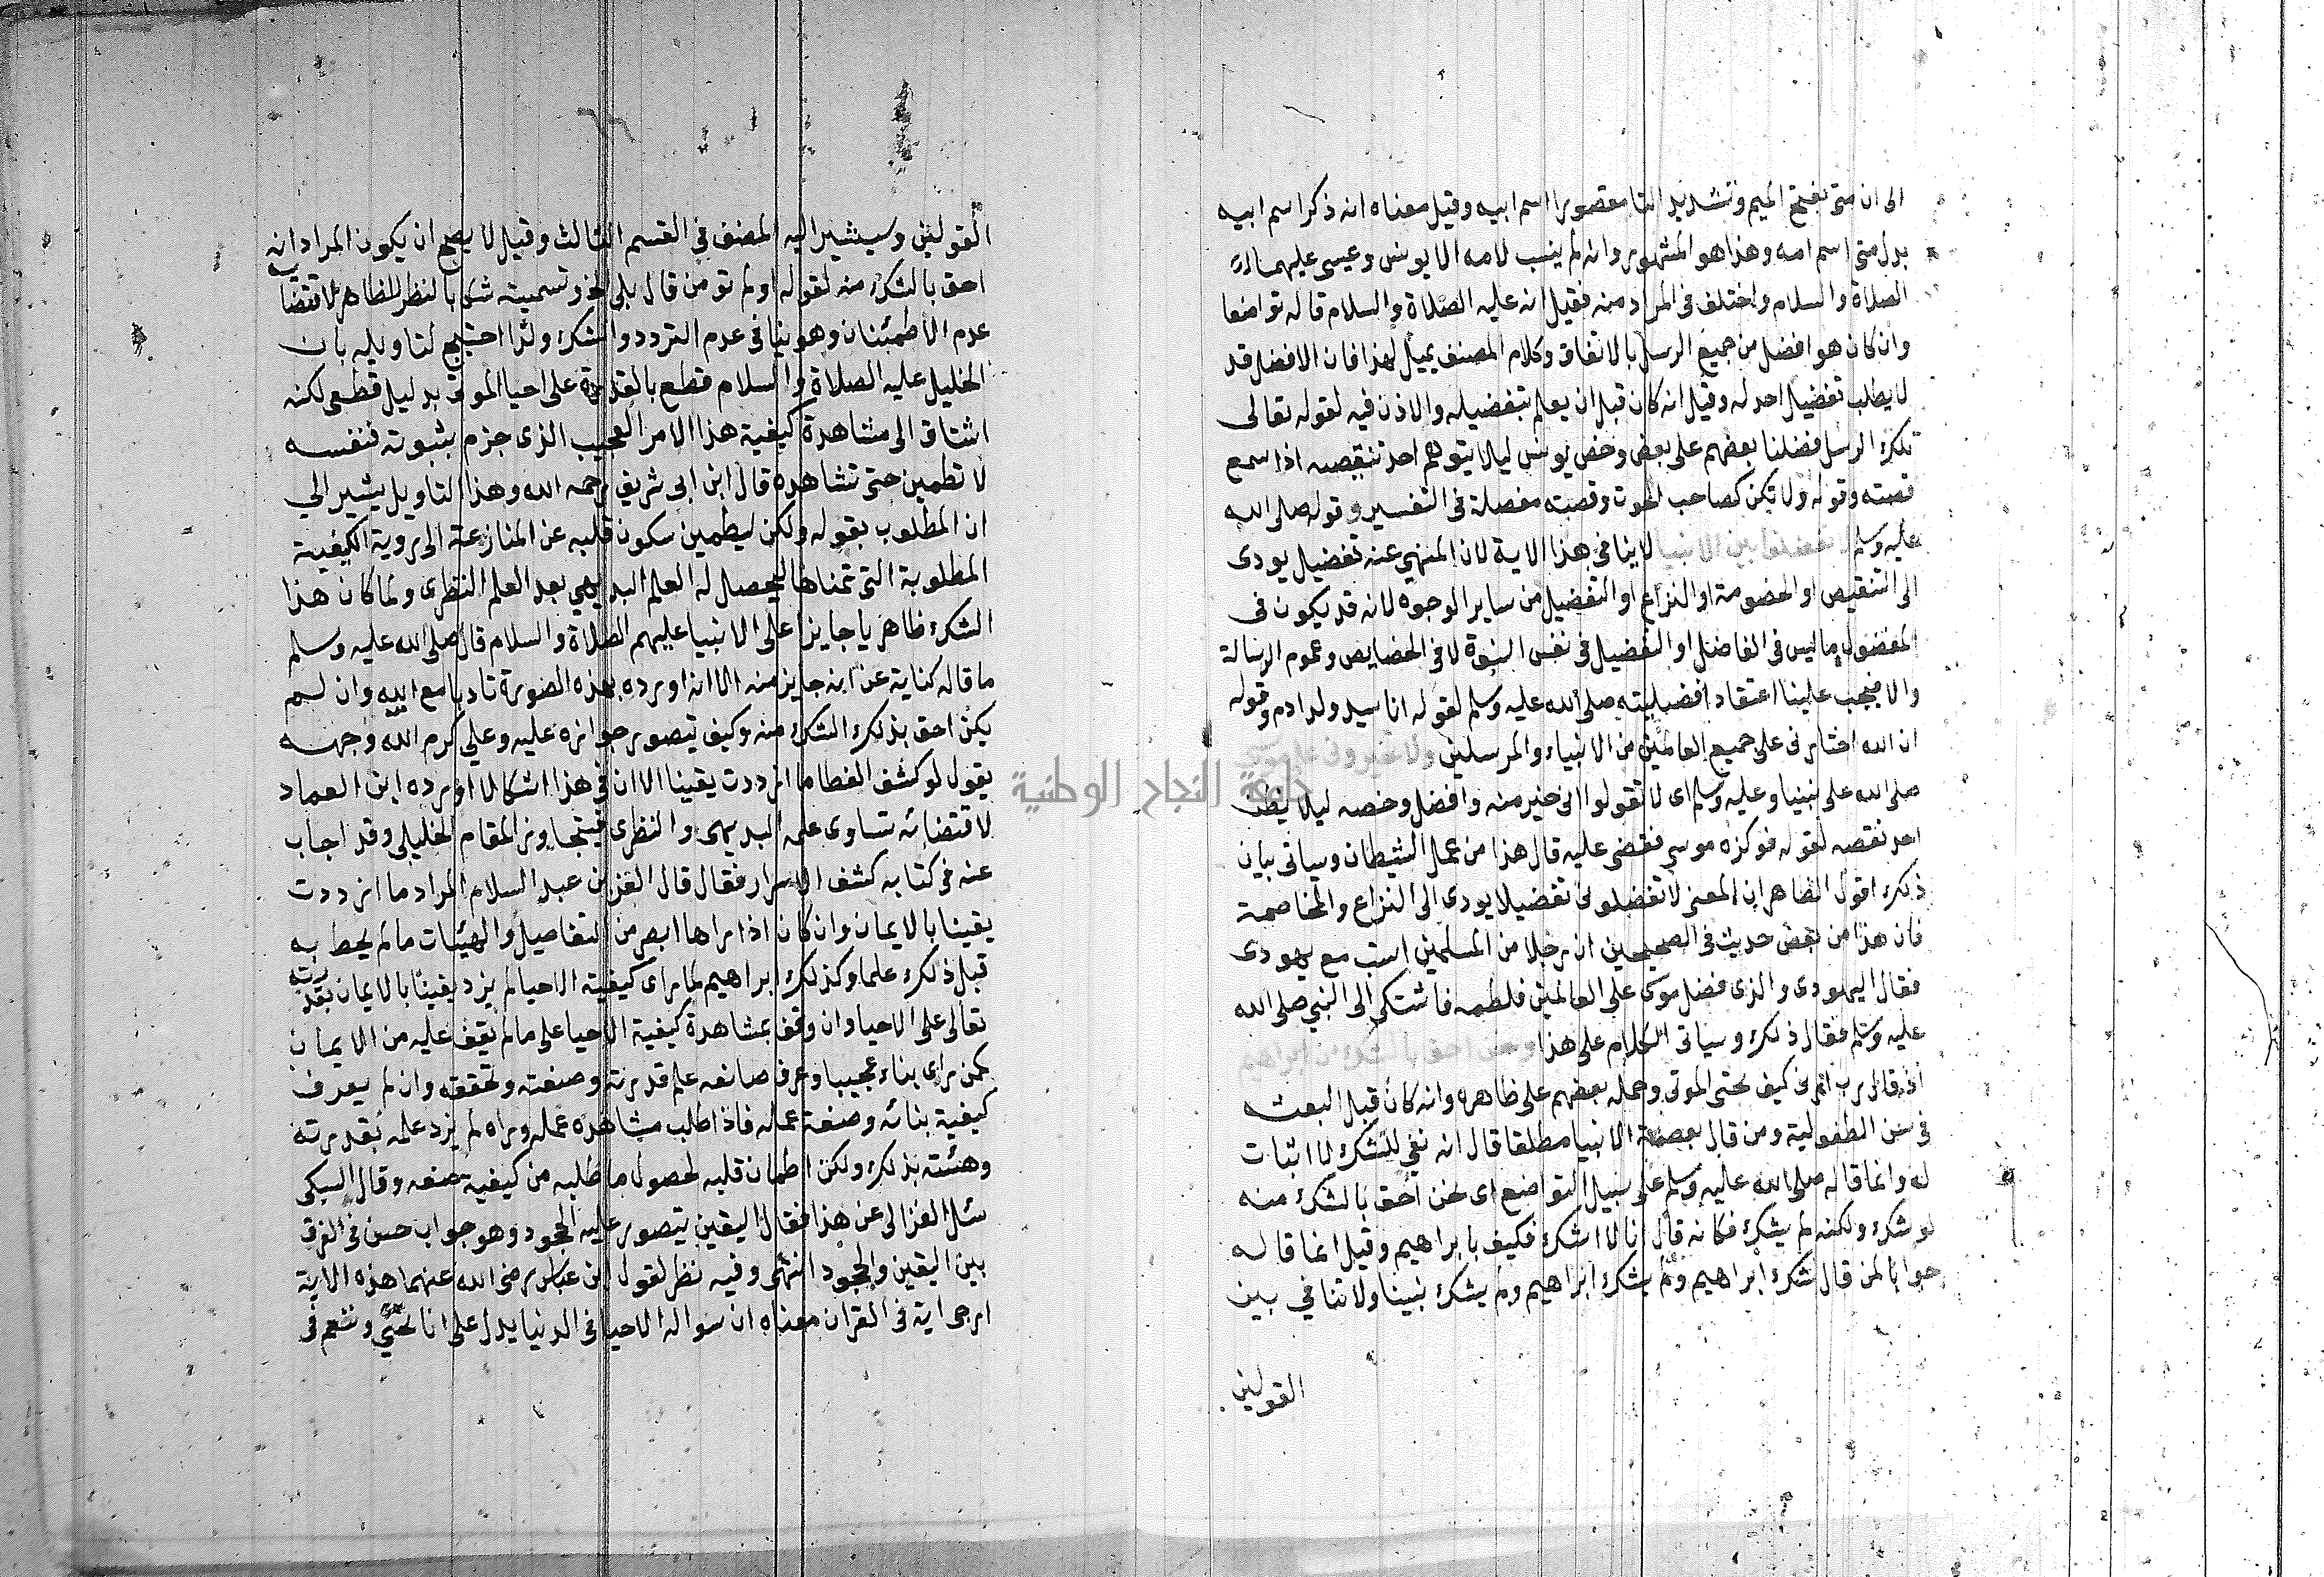 الى ان متى بفتح الميم وتشديد التا مقصورا اسم ابيه وقيل معناه انه ذكر اسم ابيه
بدل متى اسم امه وهذا هو المشهور وانه لم ينسب لامه الا يونس وعيسى عليهما
الصلاة والسلام واختلف فى المراد منه فقيل انه عليه الصلاة والسلام قاله تواضعا
وان كان هو افضل من جميع الرسل بالاتفاق وكلام المصنف يميل لهذا فان الافضل قد
لا يطلب تفضيل احد له وقيل انه كان قبل ان يعلم بتفضيله والاذن فيه لقوله تعالى
تلك الرسل فضلنا بعضهم على بعض وخص يونس ليلا يتوهم احد تنقصه اذا سمع
قصته وقوله ولا تكن كصاحب الحوت وقصته مفصلة فى التفسير وقوله صلى الله
عليه وسلم لا تفضلوا بين الانبيا لا ينافى هذا الاية لان المنهي عنه تفضيل يودى
الى التنقيص او الخصومة او النزاع او التفضيل من ساير الوجوه لانه قد يكون فى
المفضول ما ليس فى الفاضل او التفضيل فى نفس النبوة لا فى الخصايص وعموم الرسالة
والا فيجب علينا اعتقاد افضليته صلى الله عليه وسلم لقوله انا سيد ولد ادم وقوله
ان الله اختارنى على جميع العالمين من الانبياء والمرسلين ولا تخيرونى على موسى
صلى الله على نبينا وعليه وسلم اى لا تقولوا انى خير منه وافضل وخصه ليلا يظن
احد نقصه لقوله فوكزه موسى فقضى عليه قال هذا من عمل الشيطان وسياتى بيان
ذلك اقول الظاهر ان المعنى لا تفضلونى تفضيلا يودى الى النزاع والمخاصمة
فان هذا من بعض حديث فى الصحيحين ان رجلا من المسلمين استب مع يهودى
فقال اليهودى والذى فضل موسى على العالمين فلطمه فاشتكى الى النبي صلى الله
عليه وسلم فقال ذلك وسياتى الكلام على هذا ونحن احق بالشك من ابراهيم
اذ قال رب ارنى كيف تحيى الموتى وحمله بعضهم على ظاهره وانه كان قبل البعثه
فى سن الطفولية ومن قال بعصمة الانبيا مطلقا قال انه نفي للشك لا اثبات
له وانما قاله صلى الله عليه وسلم على سبيل التواضع اى نحن احق بالشك منه
لو شك ولكنه لم يشك فكانه قال انا لا اشك فكيف بابراهيم وقيل انما قاله
جوابا لمن قال شك ابراهيم ولم يشك ابراهيم ولم يشك نبينا ولا تنافي بين
القولين
القولين وسيشير اليه المصنف في القسم الثالث وقيل لا يصح ان يكون المراد انه
احق بالشك منه لقوله اولم تومن قال بلى الخ وتسميته شكا بالنظر للظاهر لاقتضا
عدم الاطمئنان وهو ينافى عدم التردد والشك ولذا احتيج لتاويله بان
الخليل عليه الصلاة والسلام قطع بالقدرة على احيا الموتى بدليل قطعى لكنه
اشتاق الى مشاهدة كيفية هذا الامر العجيب الذى جزم بثبوته فنفسه
لا تطمين حتى تشاهده قال ابن ابى شريف رحمه الله وهذا التاويل يشير الي
ان المطلوب بقوله ولكن ليطمين سكون قلبه عن المنازعة الى روية الكيفية
المطلوبة التى تمناها ليحصل له العلم البديهي بعد العلم النظرى ولما كان هذا
الشك ظاهريا جايزا على الانبيا عليهم الصلاة والسلام قال صلى الله عليه وسلم
ما قاله كناية عن انه جايز منه الا انه اورده بهذه الصورة تادبا مع ابيه وان لم
يكن احق بذلك الشك منه وكيف تيصور جوازه عليه وعلي كرم الله وجهه
يقول لو كشف الغطا ما ازددت يقينا الا ان فى هذا اشكالا اورده ابن العماد
لاقتضائه تساوى علمه البديهى والنظرى فيتجاوز المقام الخليلى وقد اجاب
عنه فى كتابه كشف الاسرار فقال قال العز بن عبد السلام المراد ما ازددت
يقينا بالايمان وان كان اذا راها ابصر من التفاصيل والهيئات ما لم يحط به
قبل ذلك علما وكذلك ابراهيم لما راى كيفية الاحيا لم يزد يقينا بالايمان بقدرته
تعالى على الاحيا وان وقف بمشاهدة كيفية الاحيا على ما لم يقف عليه من الايمان
كمن راى بناء عجيبا وعرف صانعه علم قدرته وصنعته وتحققه وان لم يعرف
كيفية بنائه وصنعة عمله فاذا طلب مشاهدة عمله وراه لم يزد علمه بقدرته
وهئته بذلك ولكن اطمان قلبه لحصول ما طلبه من كيفية صنعه وقال السبكى
سئل الغزالى عن هذا فقال اليقين يتصور عليه الجحود وهو جواب حسن فى الفرق
بين اليقين والجحود انتهى وفيه نظر لقول ابن عباس رضى الله عنهما هذه الاية
ارجى اية فى القران معناه ان سواله الاحيا فى الدنيا يدل على انا نحيي وننعم فى
جامعة النجاح الوطنية